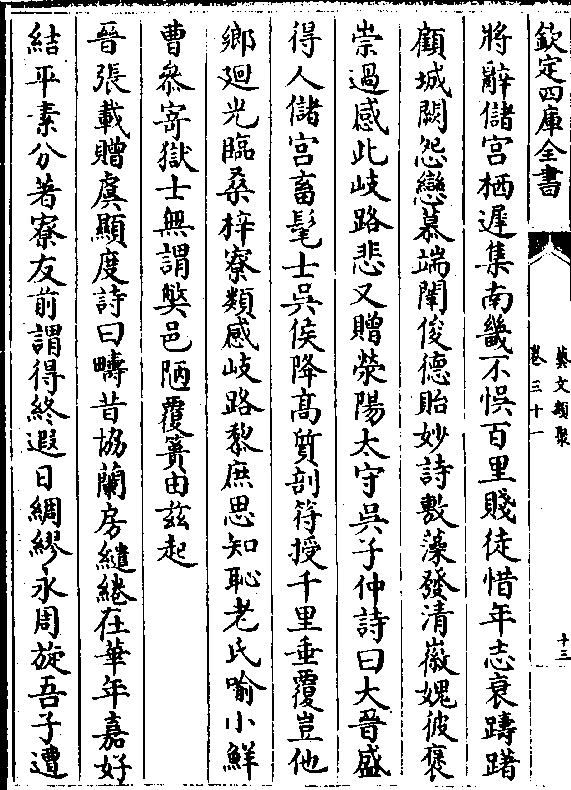 欽定四庫全書
藝文類聚
卷三十一
十三
將辭儲宮栖遲集南畿不悞百里賤徒惜年志衰躊躇
顧城闕怨戀慕端闈俊德貽妙詩敷藻發清徽媿彼褒
崇過感此岐路悲又贈滎陽太守吳子仲詩曰大晉盛
得人儲宮畜髦士吳侯降高質剖符授千里垂覆豈他
鄉廻光臨桑梓寮類感岐路黎庶思知恥老氏喻小鮮
曹參寄獄士無謂獘邑陋覆簣由兹起
晉張載贈虞顯度詩曰疇昔協蘭房繾綣在華年嘉好
結平素分著寮友前謂得終遐日綢繆永周旋吾子遭